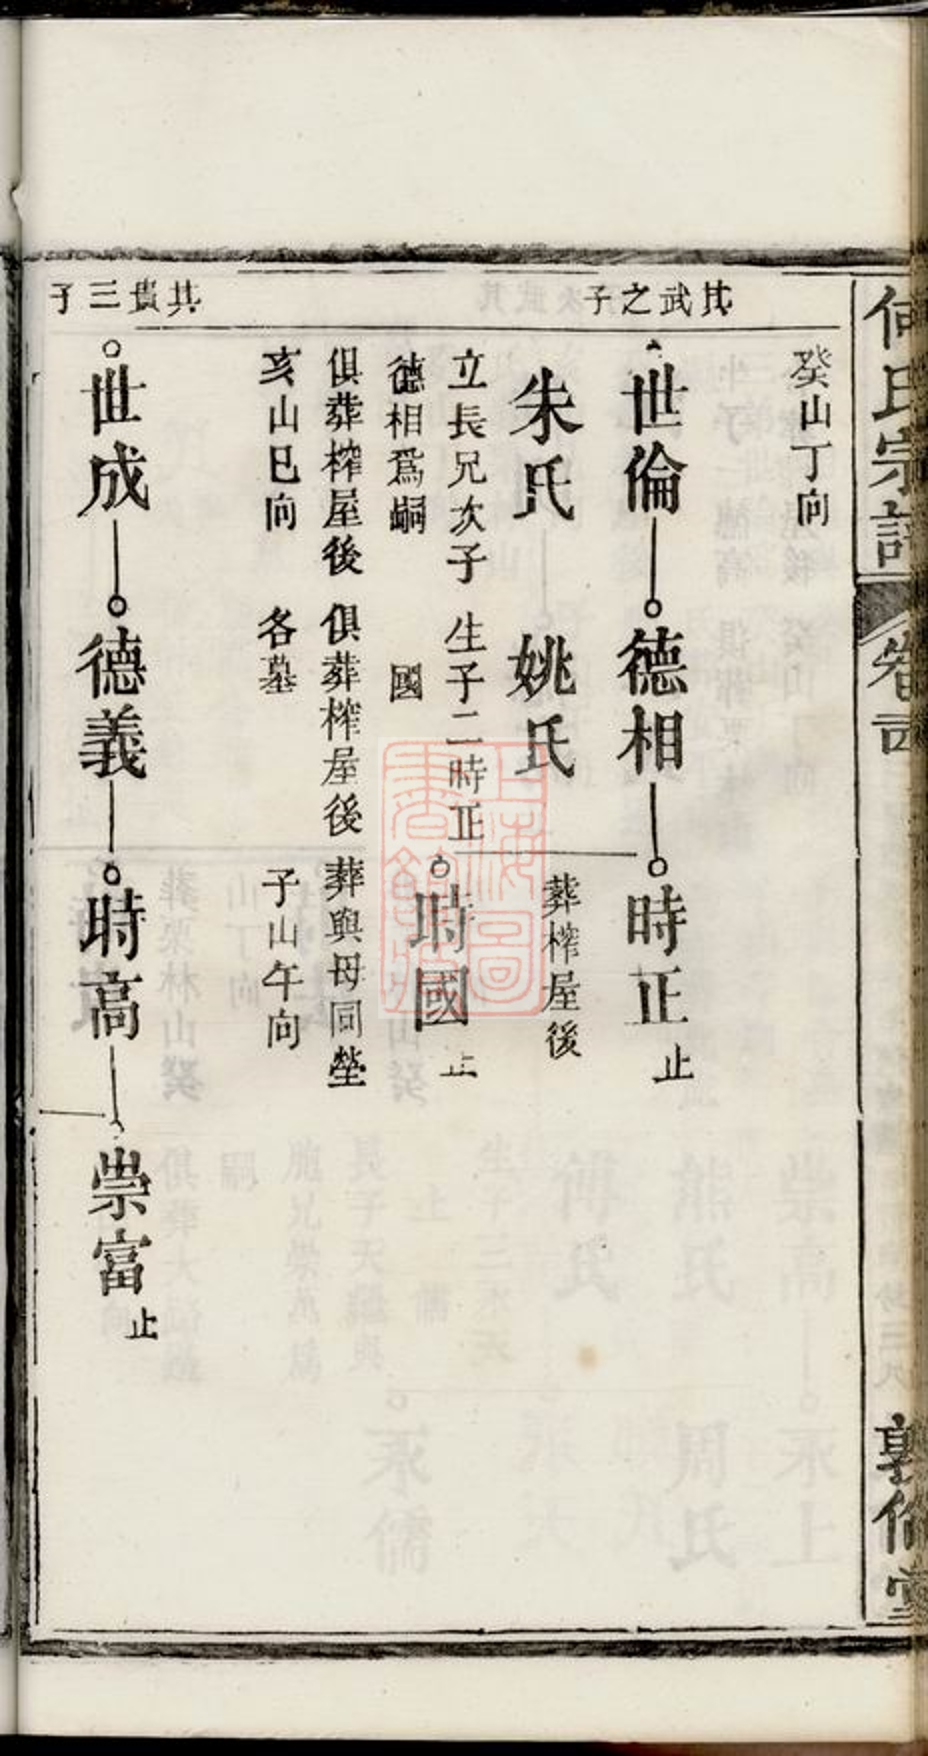 何氏宗譜
卷二
敦倫堂
癸山丁向
其武之子
世倫
德相
時正
止
朱氏
姚氏
葬榨屋後
立長兄次子
德相爲嗣
生子二時正
國
時國
止
俱葬榨屋後
亥山巳向
俱葬榨屋後
各墓
葬與母同塋
子山午向
其貴三子
世成
德義
時高
崇富
止